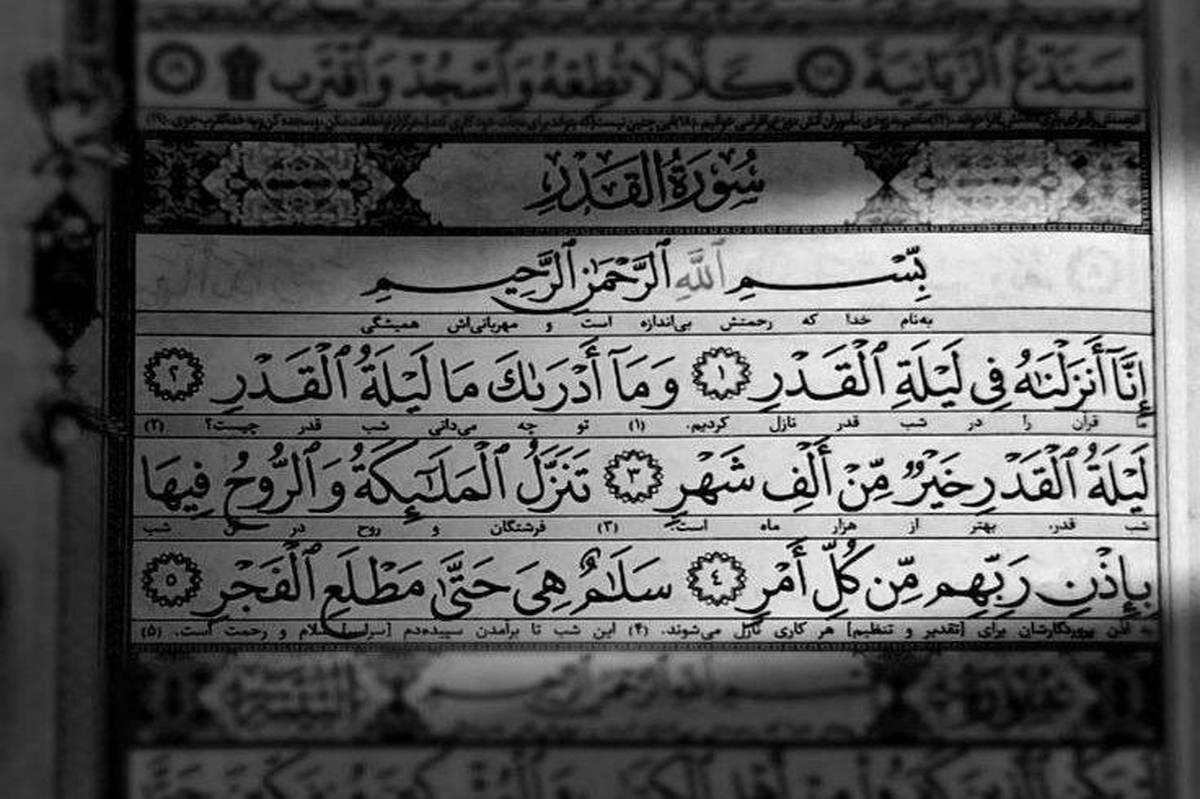 سَنَدْعُ ٱلزَّبَانِيَةَ ١٨ كَلَّا لَا تُطِعْهُ وَٱسْجُدْ وَٱقْتَرِب ۩ ١٩
سُورَةُ القَدْرِ
بِسْمِ ٱللَّهِ ٱلرَّحْمَٰنِ ٱلرَّحِيمِ
به‌نام خدا که رحمتش بی‌اندازه است و مهربانی‌اش همیشگی
إِنَّآ أَنزَلْنَٰهُ فِى لَيْلَةِ ٱلْقَدْرِ ١ وَمَآ أَدْرَىٰكَ مَا لَيْلَةُ ٱلْقَدْرِ ٢
ما قرآن را در شب قدر نازل کردیم. (١) تو چه می‌دانی شب قدر چیست؟ (٢)
لَيْلَةُ ٱلْقَدْرِ خَيْرٌ مِّنْ أَلْفِ شَهْرٍ ٣ تَنَزَّلُ ٱلْمَلَٰٓئِكَةُ وَٱلرُّوحُ فِيهَا
شب قدر، بهتر از هزار ماه است. (٣) فرشتگان و روح در شب
بِإِذْنِ رَبِّهِم مِّن كُلِّ أَمْرٍ ٤ سَلَٰمٌ هِىَ حَتَّىٰ مَطْلَعِ ٱلْفَجْرِ ٥
به اذن پروردگارشان برای [تقدیر و تنظیم] هر کاری نازل می‌شوند. (۴) این شب تا برآمدن سپیده‌دم [سراسر] سلام و رحمت است. (۵)
بسم الله الرحمن الرحيم